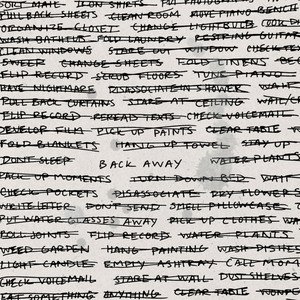 SORT MAIL IRON SHIRTS PUT PHOTOGRAPH
PULL BACK SHEETS CLEAN ROOM MOVE PIANO BENCH
ORGANIZE CLOSET CHANGE LIGHT
WASH BATHTUB FOLD LAUNDRY RESTRING GUITAR
CLEAN WINDOWS STARE OUT WINDOW CHECK
SWEEP CHANGE SHEETS FOLD LINENS
FLIP RECORD SCRUB FLOORS TUNE PIANO
HAVE NIGHTMARE DISASSOCIATE IN SHOWER WAIT
PULL BACK CURTAINS STARE AT CEILING
FLIP RECORD REREAD TEXTS CHECK VOICEMAIL
DEVELOP FILM PICK UP PAINTS CLEAR TABLE
FOLD BLANKETS HANG UP TOWEL STAY UP
DONT SLEEP BACK AWAY WATER PLANTS
PACK UP MOMENTS TURN DOWN BED WAIT
CHECK POCKETS DISASSOCIATE DRY FLOWERS
WRITE LETTER DONT SEND SMELL PILLOWCASE
PUT WATER GLASSES AWAY PICK UP CLOTHES
ROLL JOINTS FLIP RECORD WATER PLANTS
WEED GARDEN HANG PAINTING WASH DISHES
LIGHT CANDLE EMPTY ASHTRAY CALL MOM
CHECK VOICEMAIL STARE AT WALL DUST SHELVES
EAT SOMETHING ANYTHING CLEAR TABLE